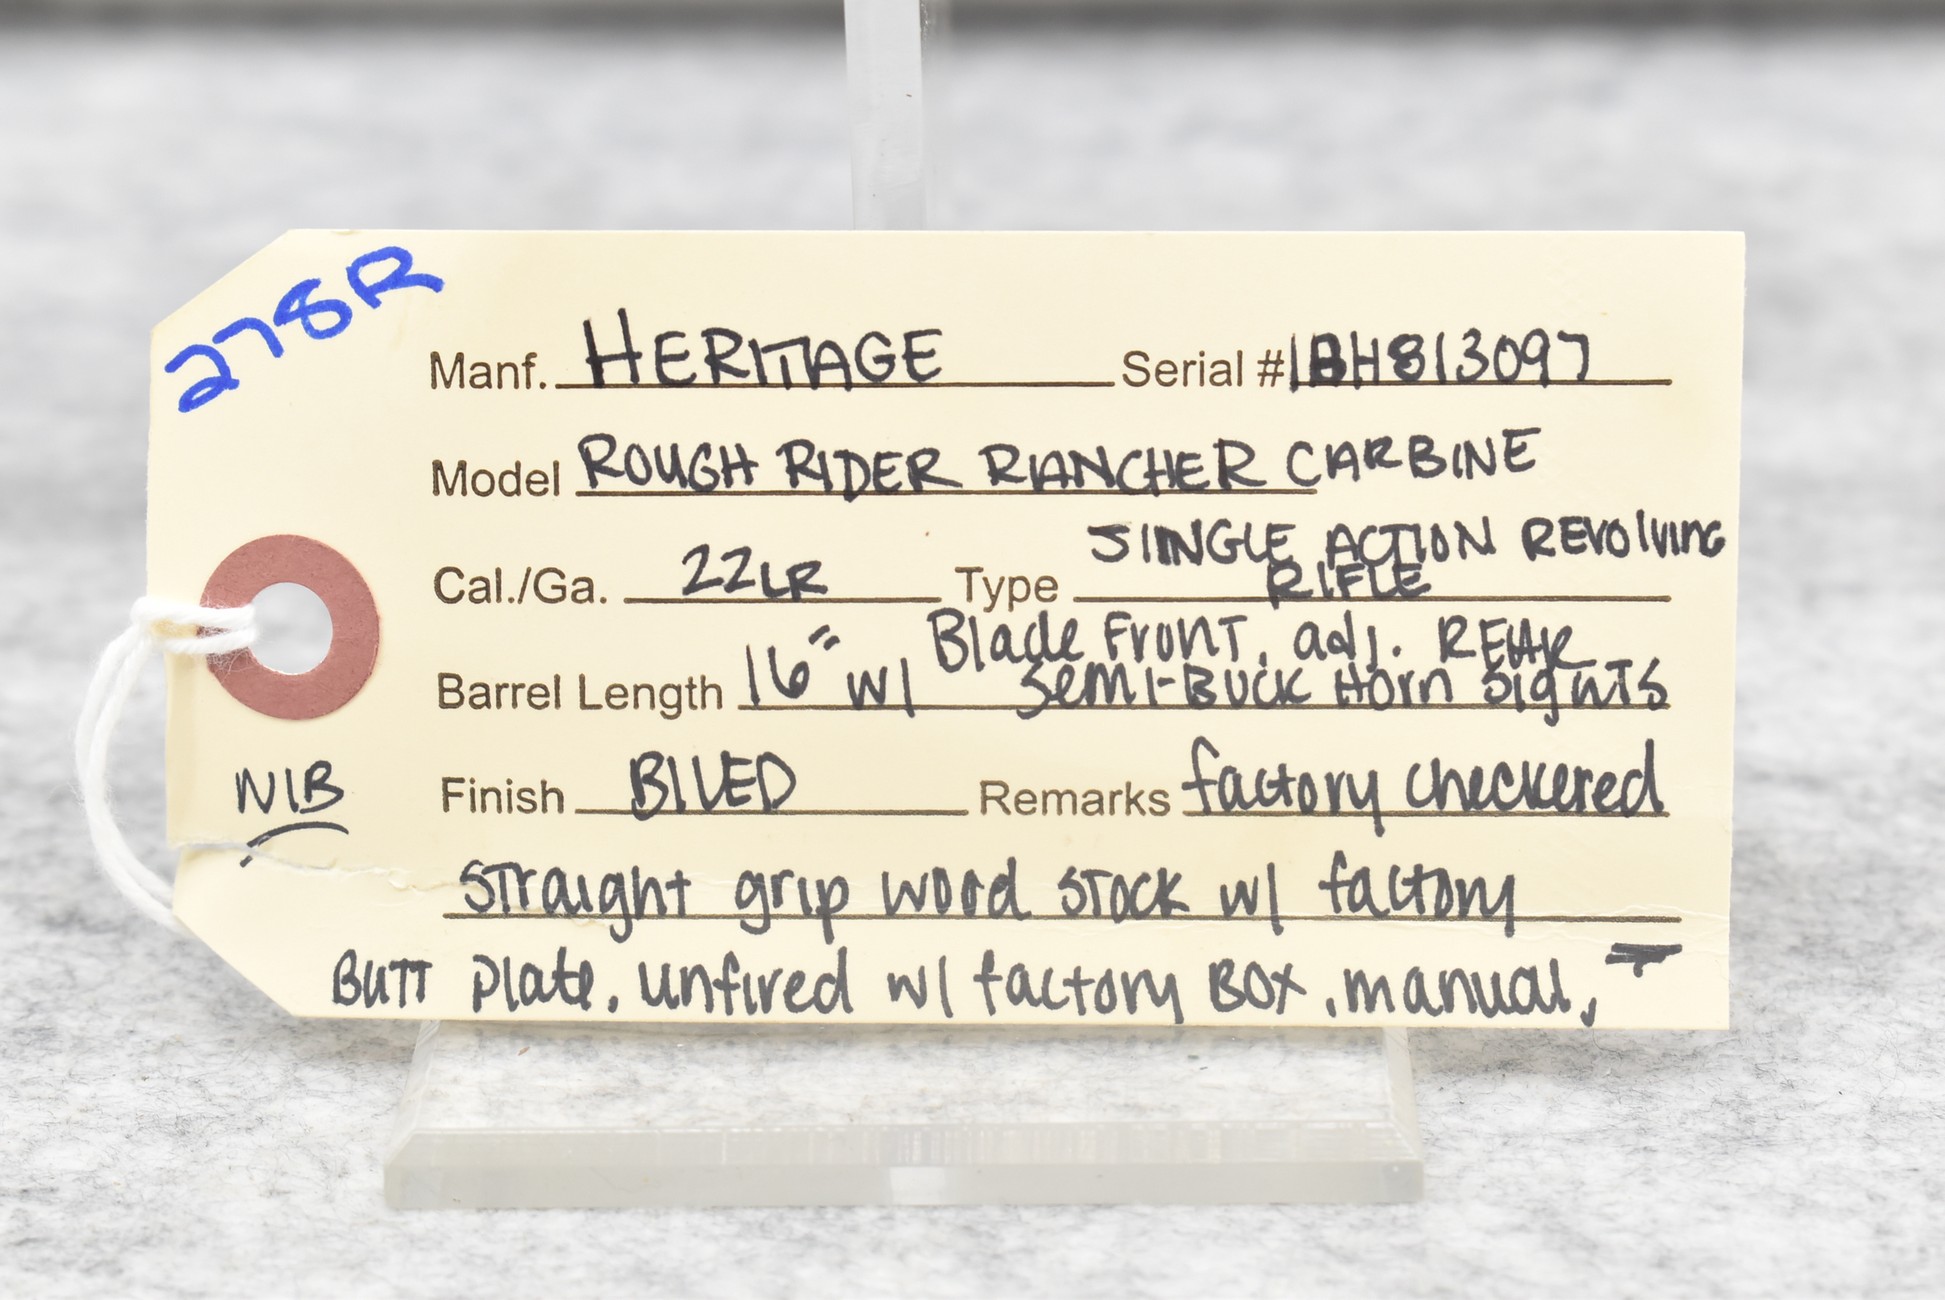 278R
Manf. HERITAGE Serial # 1BH813097
Model ROUGH RIDER RANCHER CARBINE
Cal./Ga. 22LR Type SINGLE ACTION REVOLVING
RIFLE
Blade FRONT, adj. REAR
Barrel Length 16" w/ Semi-Buck Horn Sights
NIB
Finish BLUED Remarks factory checkered
straight grip wood stock w/ factory
Butt plate. unfired w/ factory BOX, manual,